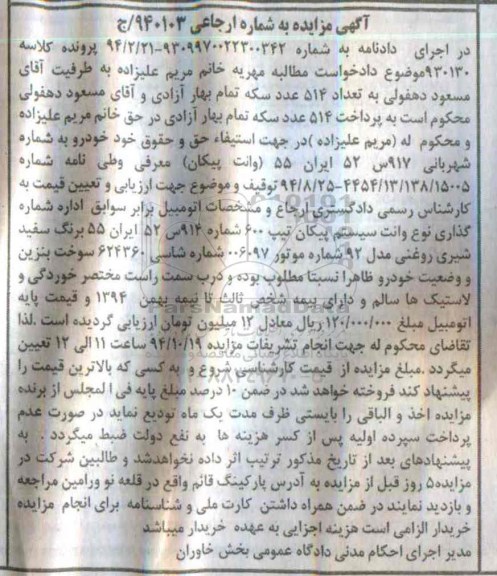 آگهی مزایده به شماره ارجاعی ۹۴۰۱۰۳/ج
در اجرای دادنامه به شماره ۹۳۰۹۹۷۰۰۲۲۳۰۰۳۴۲-۹۴/۲/۲۱ پرونده کلاسه
۹۳۰۱۳۰موضوع دادخواست مطالبه مهریه خانم مریم علیزاده به طرفیت آقای
مسعود دهفولی به تعداد ۵۱۴ عدد سکه تمام بهار آزادی و آقای مسعود دهفولی
محکوم است به پرداخت ۵۱۴ عدد سکه تمام بهار آزادی در حق خانم مریم علیزاده
و محکوم له (مریم علیزاده )در جهت استیفاء حق و حقوق خود خودرو به شماره
شهربانی ۹۱۷س ۵۲ ایران ۵۵ (وانت پیکان) معرفی وطی نامه شماره
۴۴۵۴/۱۳/۱۳۸/۱۵۰۵-۹۴/۸/۲۵ توقیف و موضوع جهت ارزیابی و تعیین قیمت به
کارشناس رسمی دادگستری ارجاع و مشخصات اتومبیل برابر سوابق اداره شماره
گذاری نوع وانت سیستم پیکان تیپ ۶۰۰ شماره ۹۱۴س ۵۲ ایران ۵۵ برنگ سفید
شیری روغنی مدل ۹۲ شماره موتور ۰۰۶۰۹۷ شماره شاسی ۶۲۴۳۶۰ سوخت بنزین
و وضعیت خودرو ظاهرا نسبتا مطلوب بوده و درب سمت راست مختصر خوردگی و
لاستیک ها سالم و دارای بیمه شخص ثالث تا نیمه بهمن ۱۳۹۴ و قیمت پایه
اتومبیل مبلغ ۱۲۰/۰۰۰/۰۰۰ ریال معادل ۱۲ میلیون تومان ارزیابی گردیده است .لذا
تقاضای محکوم له جهت انجام تشریفات مزایده ۹۴/۱۰/۱۹ ساعت ۱۱ الی ۱۲ تعیین
میگردد .مبلغ مزایده از قیمت کارشناسی شروع و به کسی که بالاترین قیمت را
پیشنهاد کند فروخته خواهد شد در ضمن ۱۰ درصد مبلغ پایه فی ا لمجلس از برنده
مزایده اخذ و الباقی را بایستی ظرف مدت یک ماه تودیع نماید در صورت عدم
پرداخت سپرده اولیه پس از کسر هزینه ها به نفع دولت ضبط میگردد . به
پیشنهادهای بعد از تاریخ مذکور ترتیب اثر داده نخواهدشد و طالبین شرکت در
مزایده۵ روز قبل از مزایده به آدرس پارکینگ قائم واقع در قلعه نو ورامین مراجعه
و بازدید نمایند در ضمن همراه داشتن کارت ملی و شناسنامه برای انجام مزایده
خریدار الزامی است هزینه اجرایی به عهده خریدار میباشد
مدیر اجرای احکام مدنی دادگاه عمومی بخش خاوران